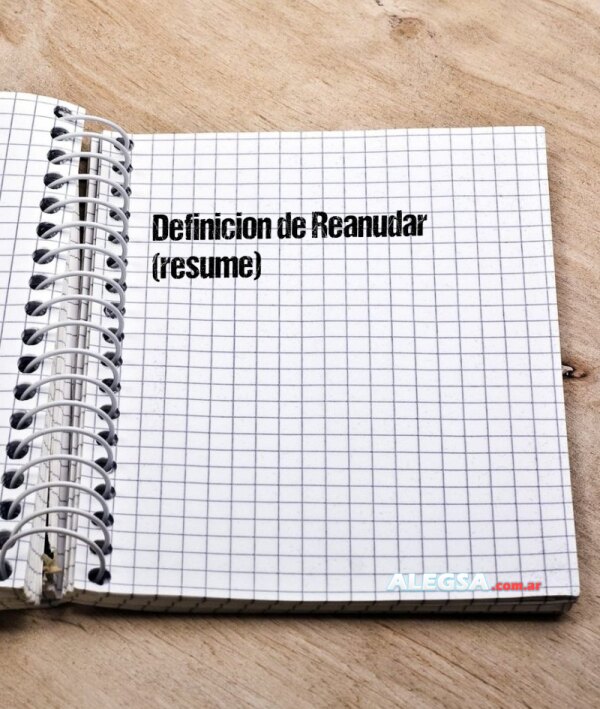 Definicion de Reanudar
(resume)
ALEGSA.com.ar